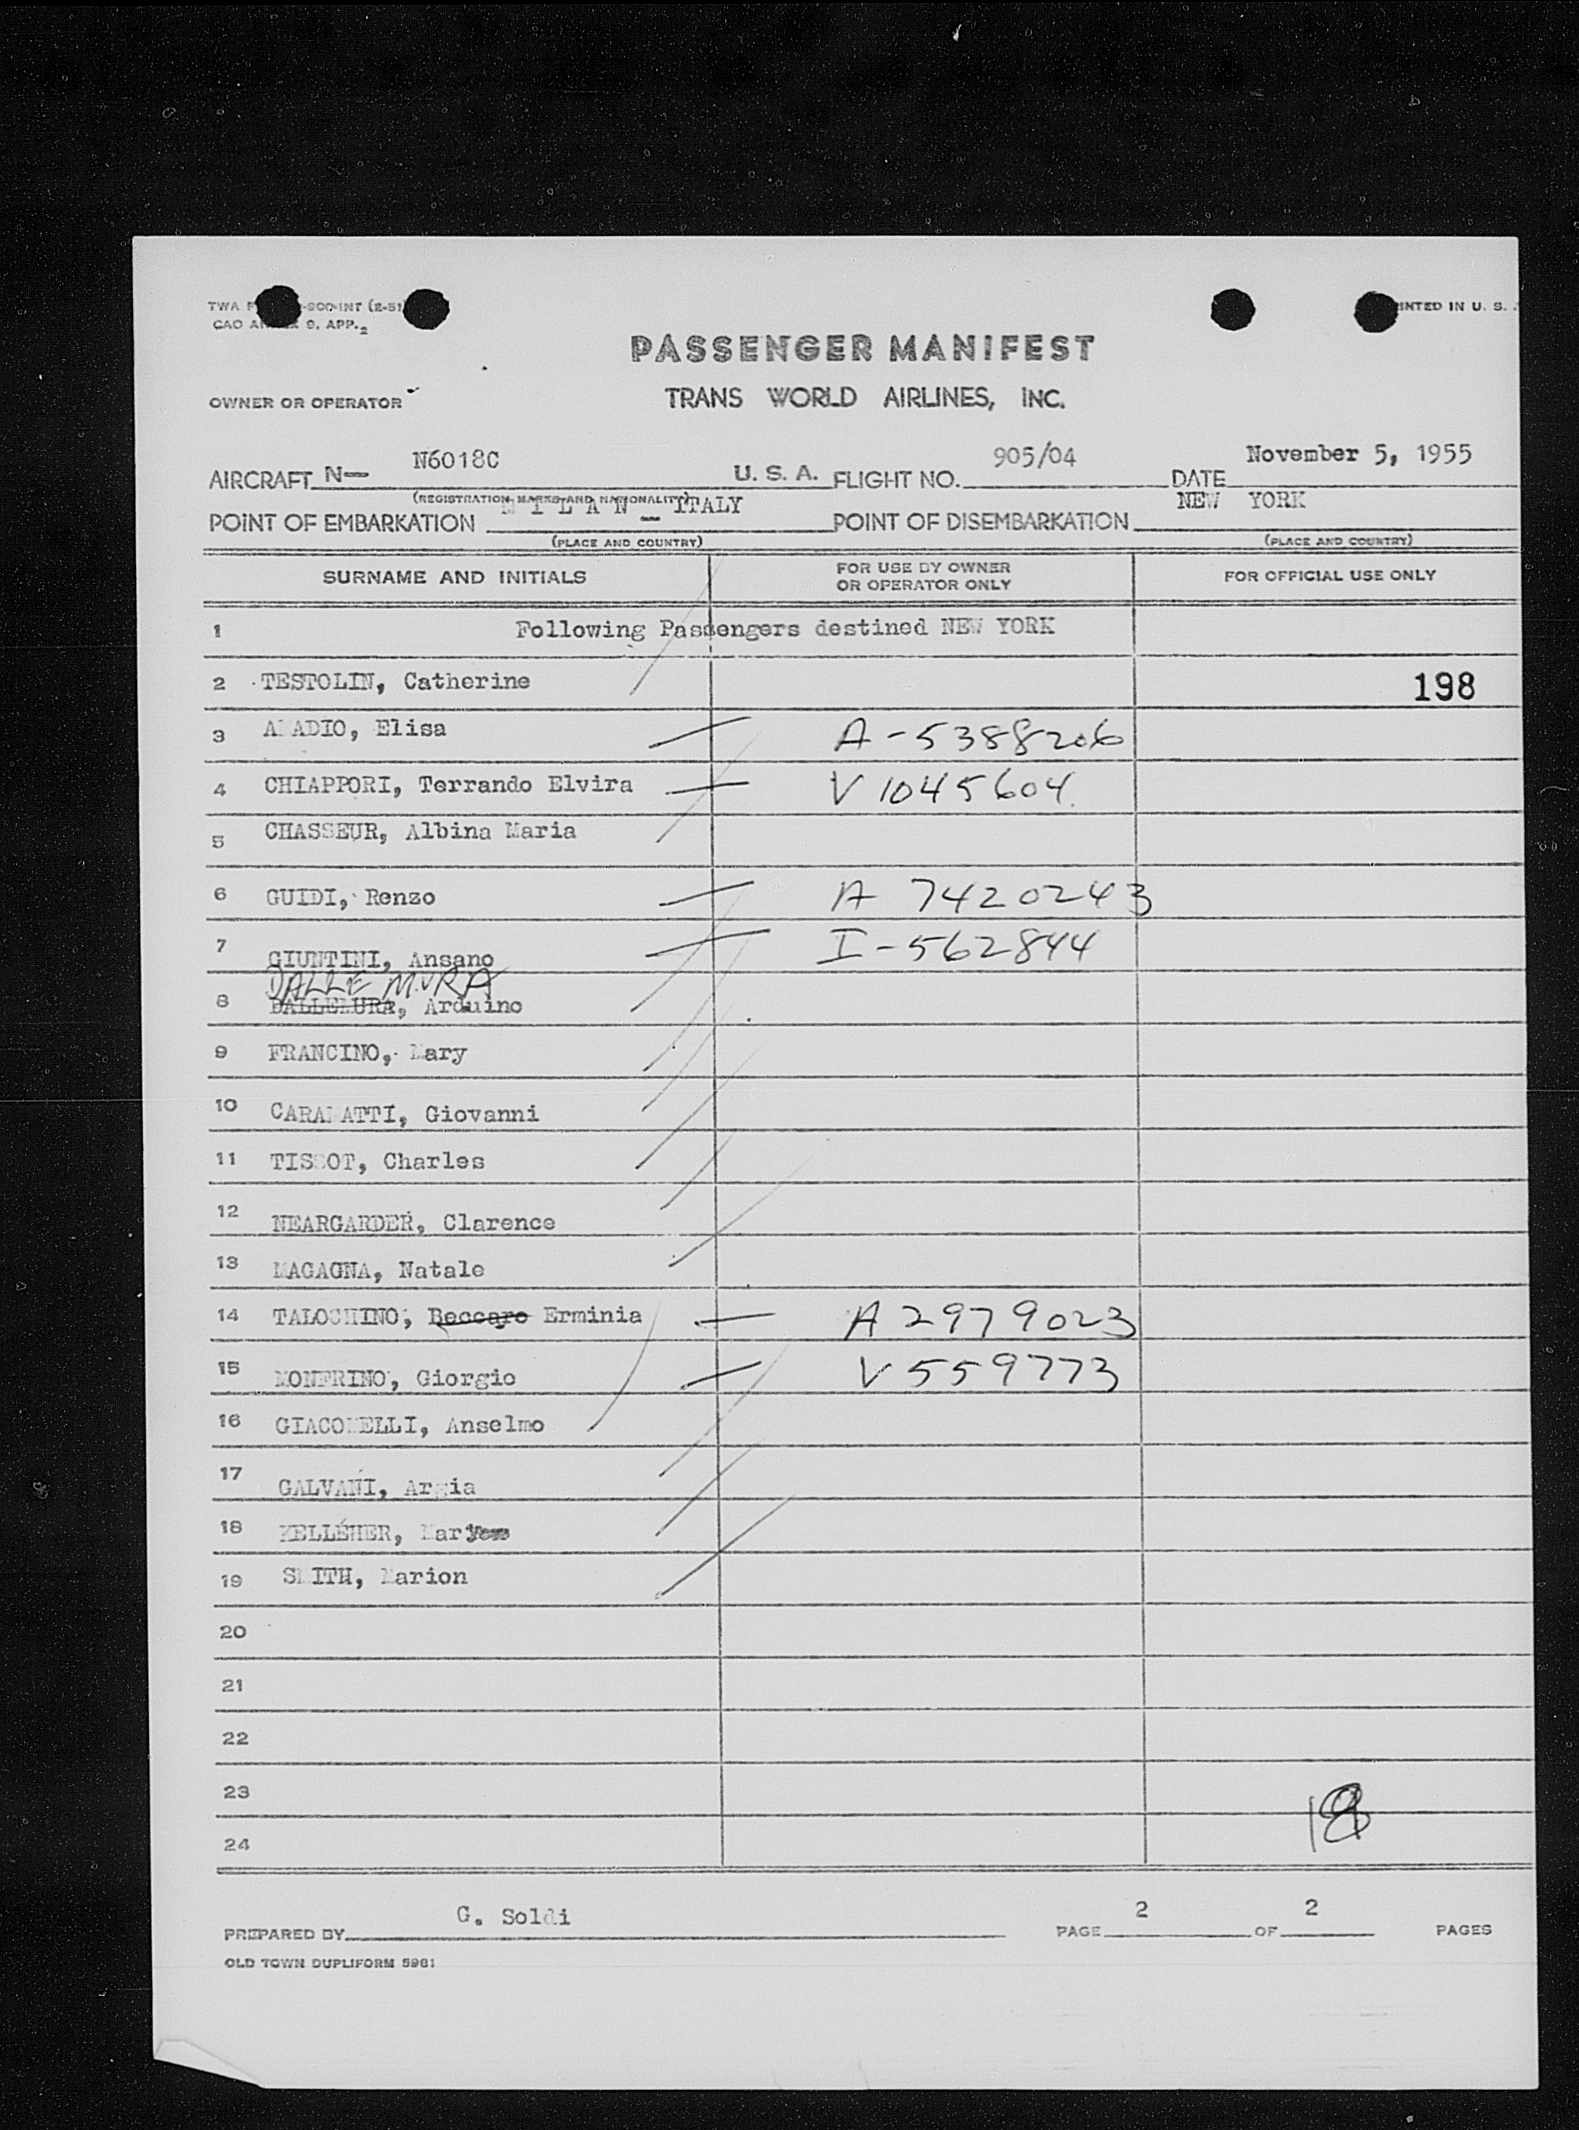 TWA F -SOD-INT (2-51)
CAO AN 9, APP. 2
INTED IN U. S.
PASSENGER MANIFEST
OWNER OR OPERATOR TRANS WORLD AIRLINES, INC.
AIRCRAFT N— N6018C U. S. A. FLIGHT NO. 905/04 DATE November 5, 1955
(REGISTRATION MARKS AND NATIONALITY)
POINT OF EMBARKATION MILAN - ITALY POINT OF DISEMBARKATION NEW YORK
(PLACE AND COUNTRY) (PLACE AND COUNTRY)
SURNAME AND INITIALS FOR USE BY OWNER OR OPERATOR ONLY FOR OFFICIAL USE ONLY
1 Following Passengers destined NEW YORK
2 TESTOLIN, Catherine 198
3 AMADIO, Elisa A-5388206
4 CHIAPPORI, Terrando Elvira V 1045604
5 CHASSEUR, Albina Maria
6 GUIDI, Renzo A 7420243
7 GIUNTINI, Ansano I-562844
DALLE MURA
8 DALLEMURA, Arduino
9 FRANCINO, Mary
10 CARAMATTI, Giovanni
11 TISSOT, Charles
12 NEARGARDER, Clarence
13 MAGAGNA, Natale
14 TALOCHINO, Beccaro Erminia A 2979023
15 MONFRINO, Giorgio V 559773
16 GIACOMELLI, Anselmo
17 GALVANI, Argia
18 KELLEHER, Mary
19 SMITH, Marion
20
21
22
23
24
18
PREPARED BY G. Soldi PAGE 2 OF 2 PAGES
OLD TOWN DUPLIFORM 5981